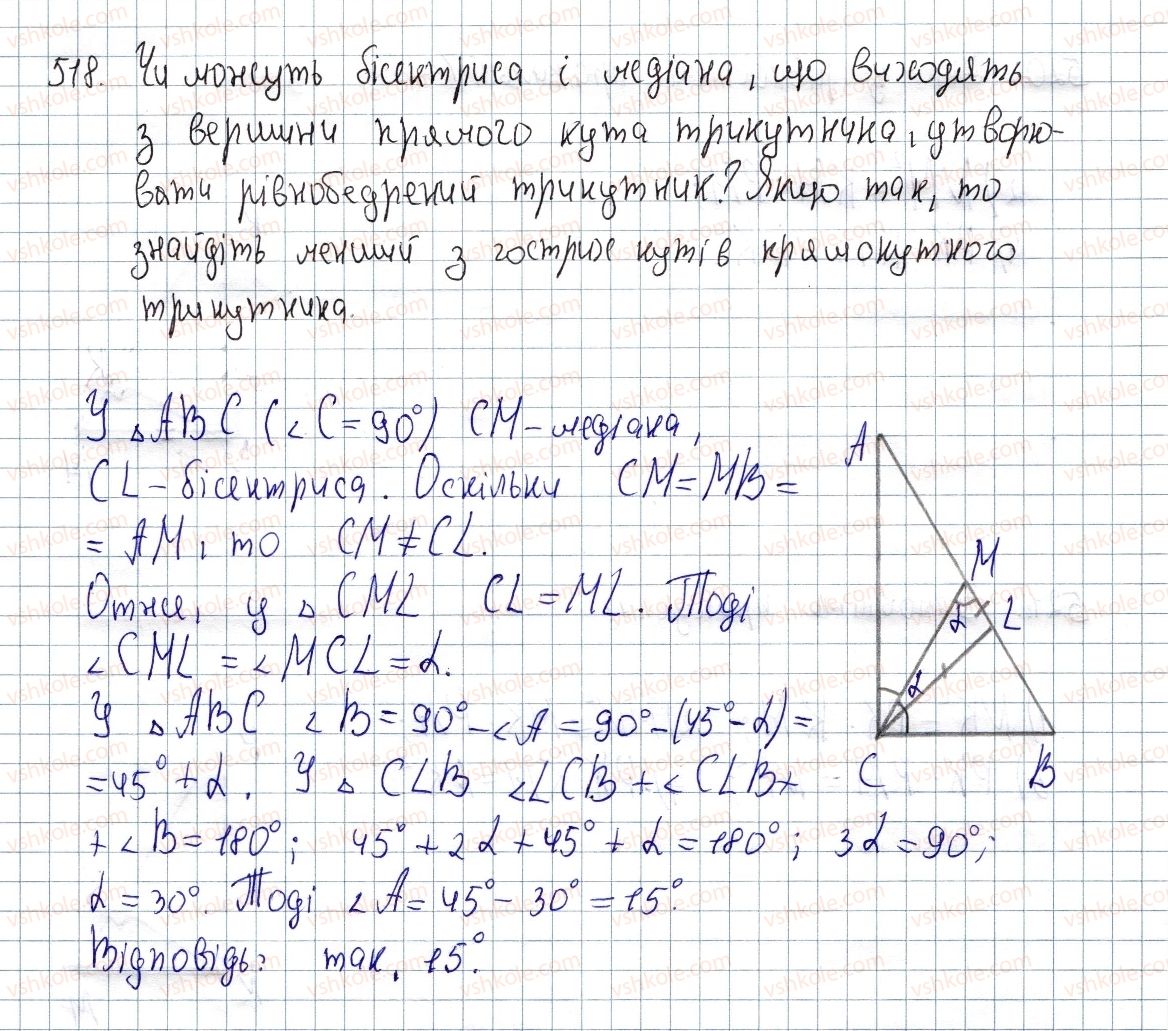 518. Чи можуть бісектриса і медіана, що виходять
з вершини прямого кута трикутника, утворю-
вати рівнобедрений трикутник? Якщо так, то
знайдіть менший з гострих кутів прямокутного
трикутника.
У △ABC (∠C = 90°) CM – медіана,
CL – бісектриса. Оскільки CM = MB =
= AM, то CM ≠ CL.
Отже, у △CML CL = ML. Тоді
∠CML = ∠MCL = α.
У △ABC ∠B = 90° – ∠A = 90° – (45° – α) =
= 45° + α. У △CLB ∠LCB + ∠CLB +
+ ∠B = 180°; 45° + 2α + 45° + α = 180°; 3α = 90°;
α = 30°. Тоді ∠A = 45° – 30° = 15°.
Відповідь: так, 15°.
A
M
α L
α
C B
vshkole.com